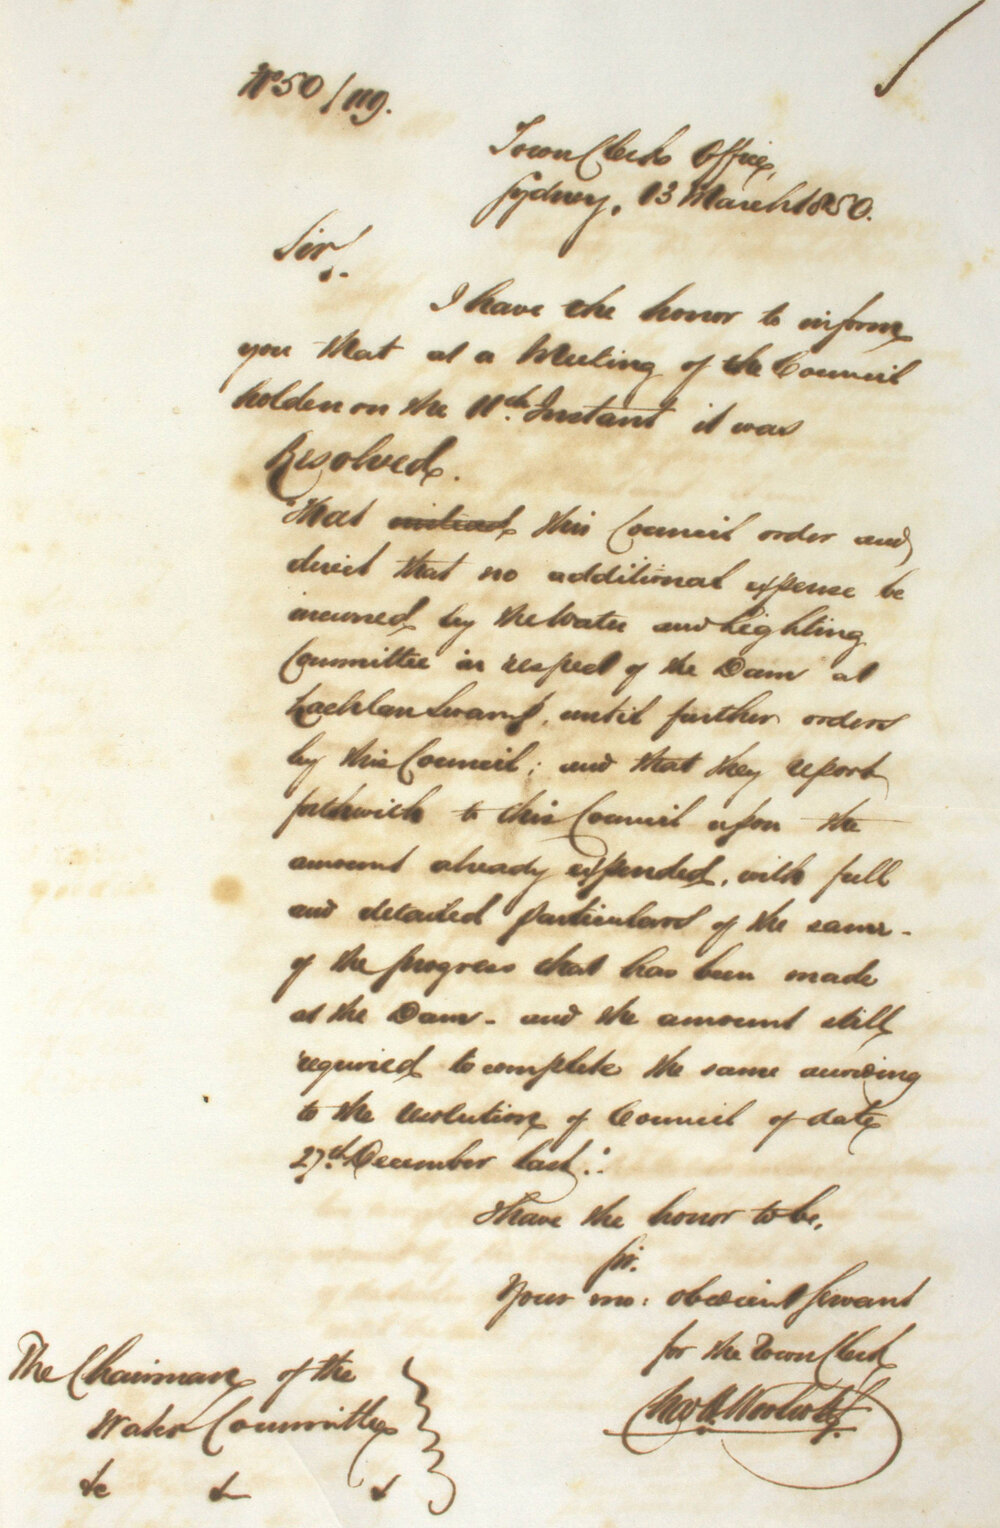 No 50/119.
Town Clerks Office,
Sydney, 13 March 1850.
Sir,
I have the honor to inform
you that at a Meeting of the Council
holden on the 11th Instant it was
Resolved.
That instead this Council order and
direct that no additional expense be
incurred by the Water and Lighting
Committee in respect of the Dam at
Lachlan Swamp, until further orders
by this Council; and that they report
forthwith to this Council upon the
amount already expended, with full
and detailed particulars of the same -
of the progress that has been made
at the Dam - and the amount still
required to complete the same according
to the resolution of Council of date
27th December last.
I have the honor to be,
Sir.
Your mo: obedient Servant
for the Town Clerk
Chas H. Woolcott
The Chairman of the
Water Committee
&c &c &c